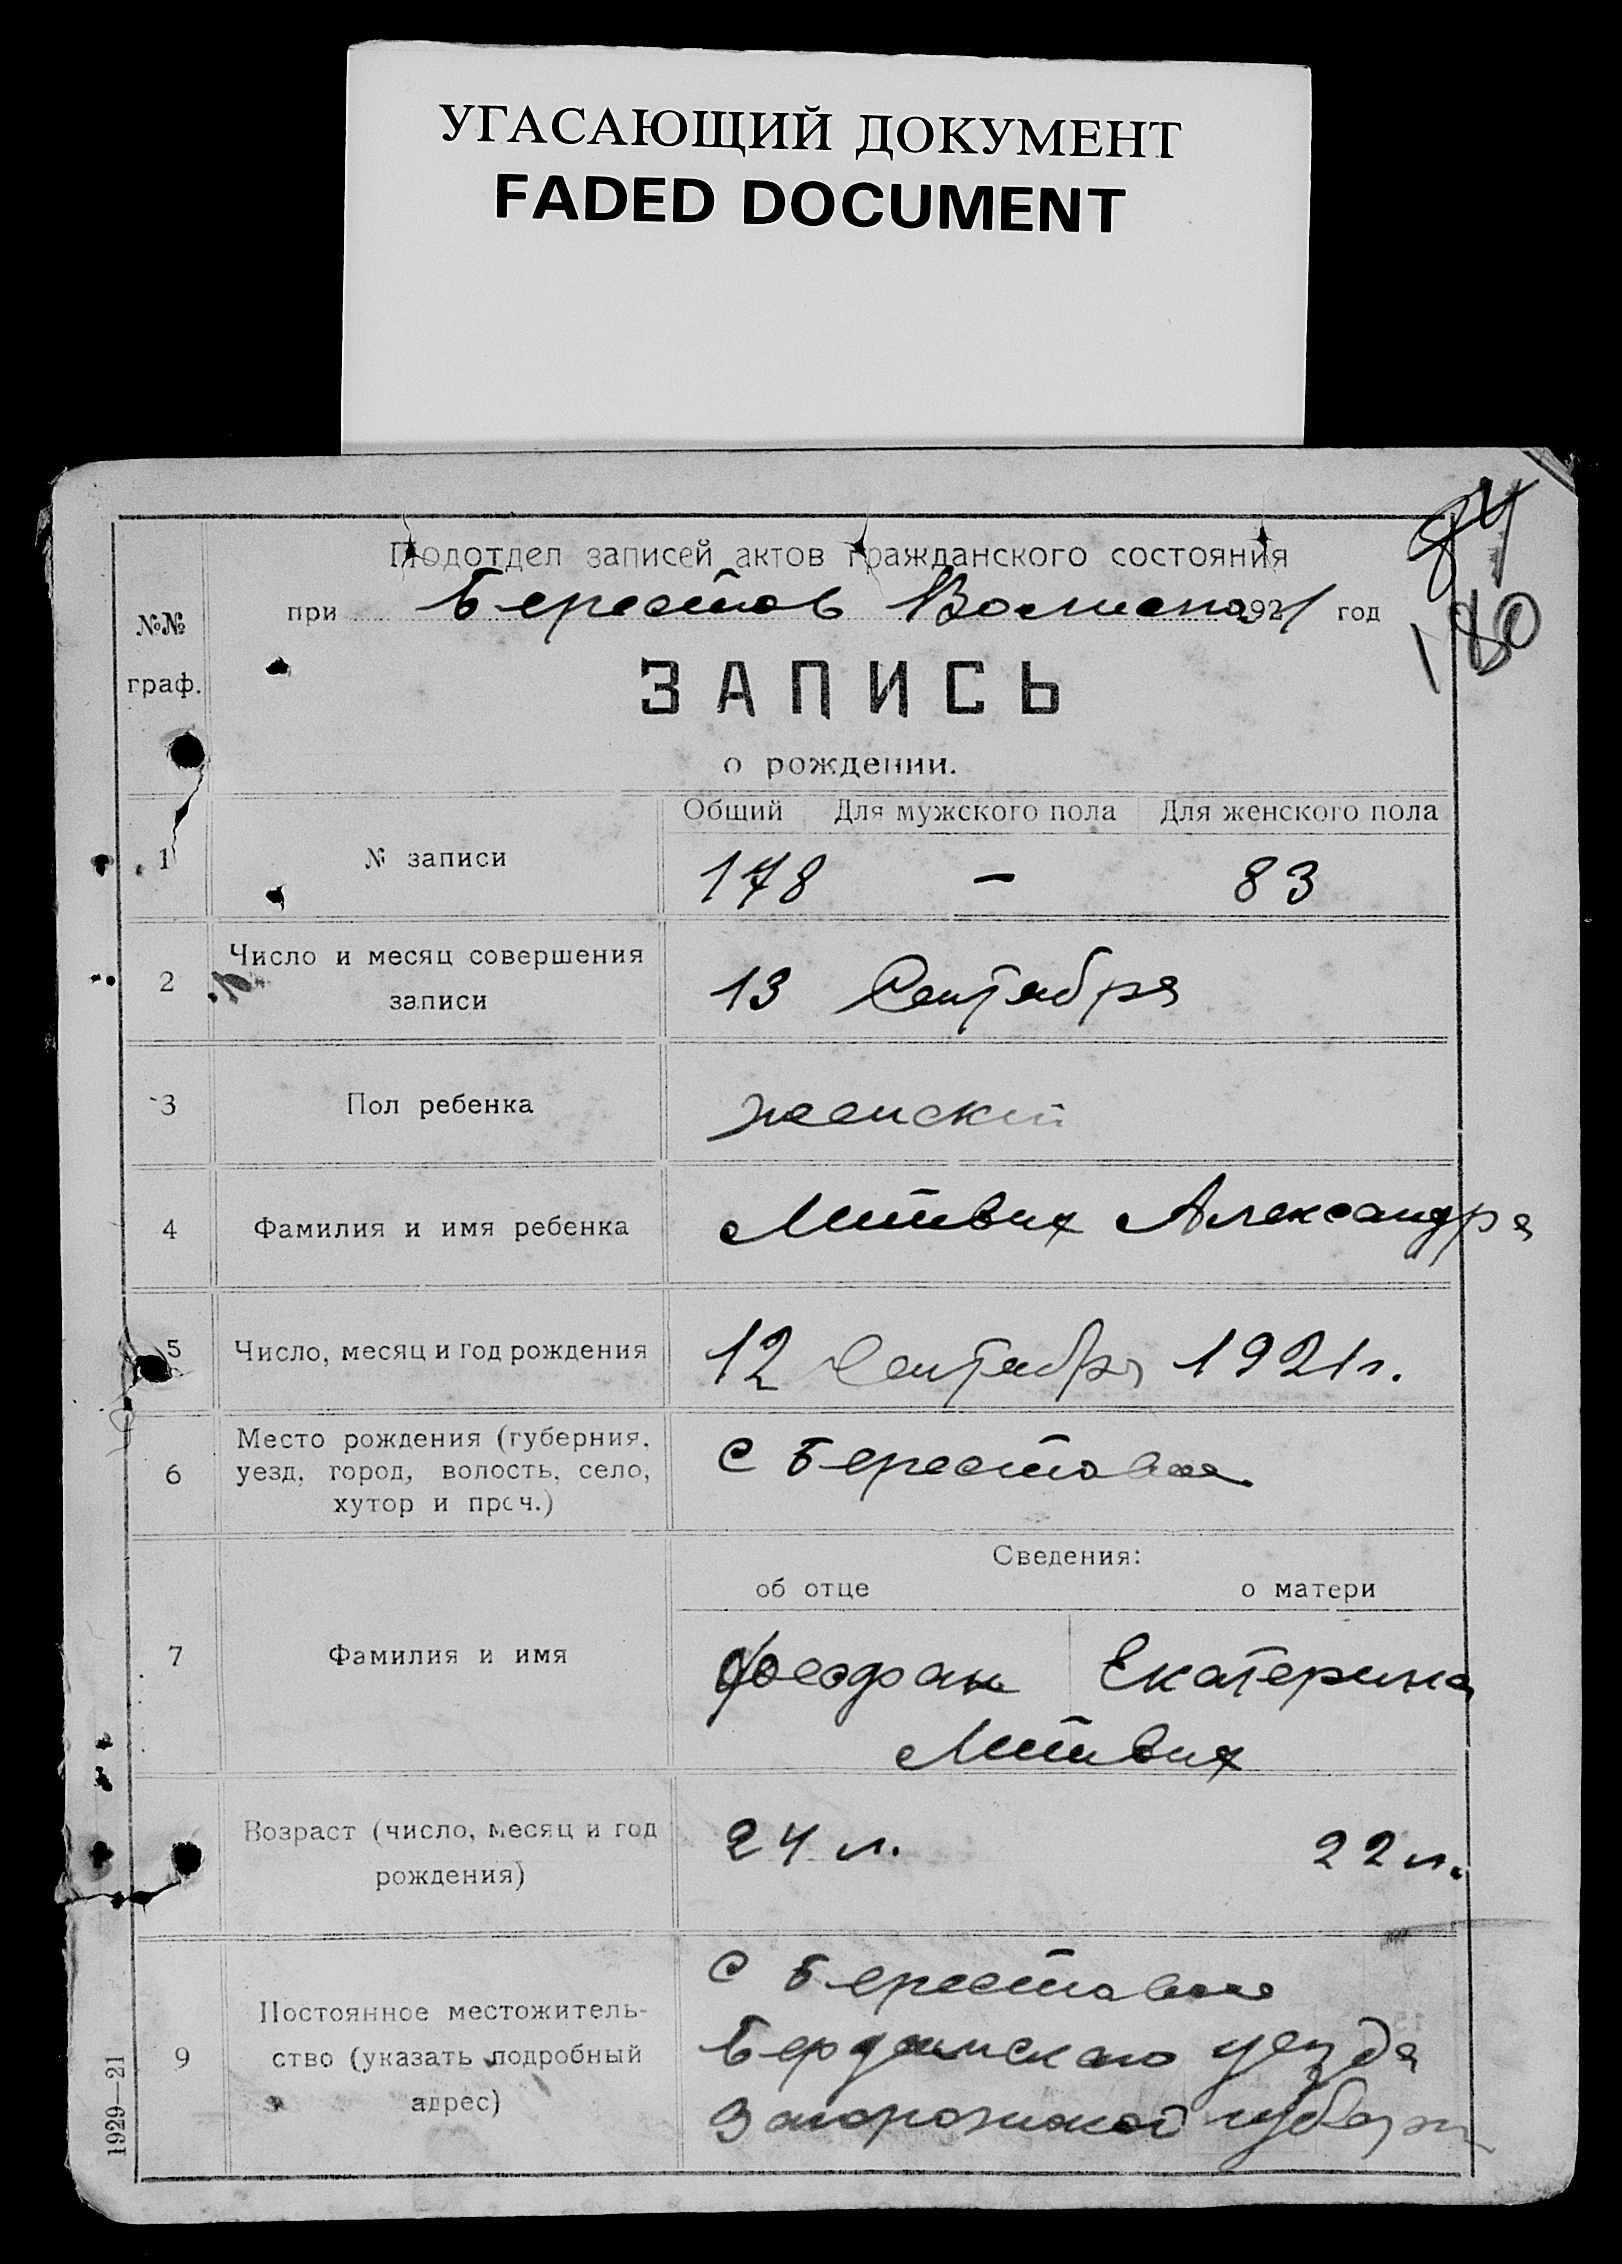 УГАСАЮЩИЙ ДОКУМЕНТ
FADED DOCUMENT
84
180
Подотдел записей актов гражданского состояния
при Берестов Волиспо 1921 год
№№ граф.
ЗАПИСЬ
о рождении.
Общий Для мужского пола Для женского пола
1 № записи 178 – 83
2 Число и месяц совершения записи 13 Сентября
3 Пол ребенка женский
4 Фамилия и имя ребенка Литвих Александра
5 Число, месяц и год рождения 12 Сентября 1921 г.
6 Место рождения (губерния, уезд, город, волость, село, хутор и проч.) С Берестовое
Сведения:
об отце о матери
7 Фамилия и имя Феофан Екатерина
Литвих
Возраст (число, месяц и год рождения) 24 л. 22 л.
9 Постоянное местожитель-
ство (указать подробный
адрес)
С Берестовое
Бердянского уезда
Запорожской губерни
1929—21